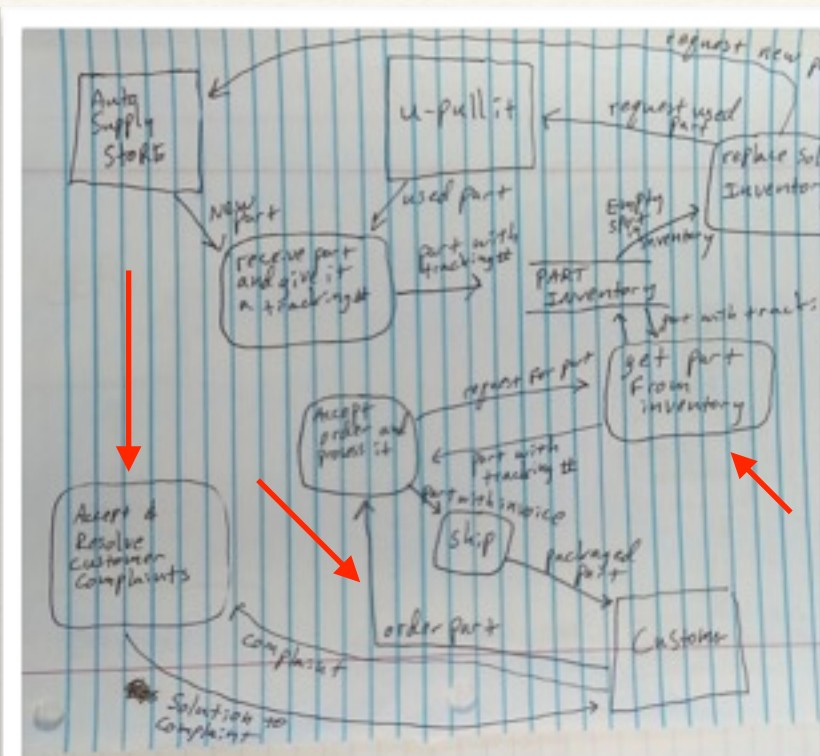 request new
Auto
Supply
StoRE
u-pullit
request used
part
replace
Inventor
New
part
used part
Empty
spot
in
inventory
receive part
and give it
a tracking#
part with
tracking#
PART
Inventory
part with track
get part
From
inventory
request for part
Accept
order and
process it
part with
tracking #
part with invoice
ship
packaged
part
Accept &
Resolve
customer
Complaints
order part
Customer
complaint
Solution to
Complaint